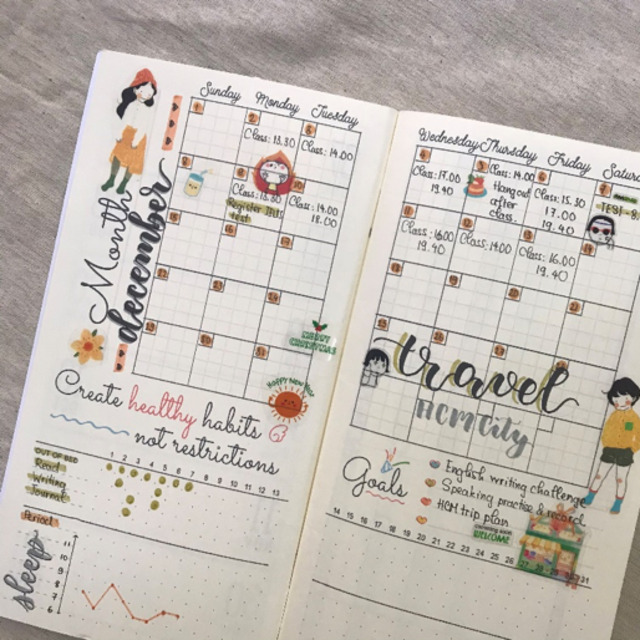 Sunday Monday Tuesday
Wednesday Thursday Friday
Month
december
Class: 13.30
Class: 14.00
Class: 17.00
19.40
Class: 14.00
Hang out
after
class
Class: 15.30
17.00
19.40
Class: 14.00
18.00
test
Class: 16.00
19.40
Class: 14.00
Class: 16.00
19.40
HAPPY NEW YEAR
travel
HCM City
Create healthy habits
not restrictions
OUT OF BED
Read
Writing
Journal
Period
1 2 3 4 5 6 7 8 9 10 11 12 13
sleep
11
10
9
8
7
6
Goals
English writing challenge
Speaking practice & record
HCM trip plan
WELCOME
14 15 16 17 18 19 20 21 22 23 24 25 26
31